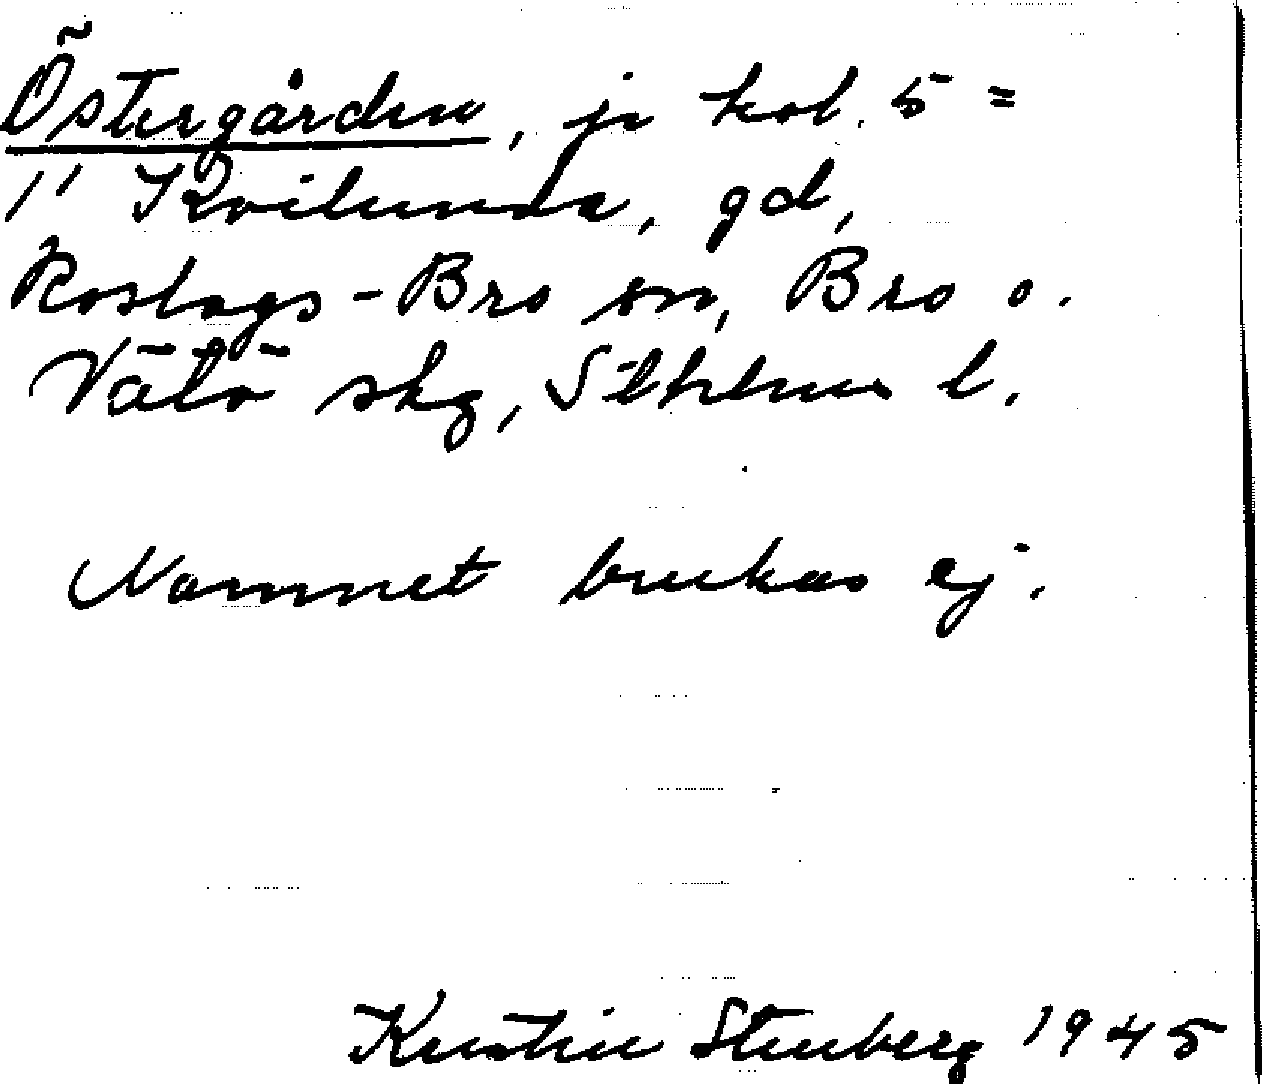 Östergården, jr kol. 5 =
1' Kvilunda, gd,
Roslags-Bro sn, Bro o.
Vätö skg, Sthlms l.
Namnet brukas ej.
Kerstin Stenberg 1945